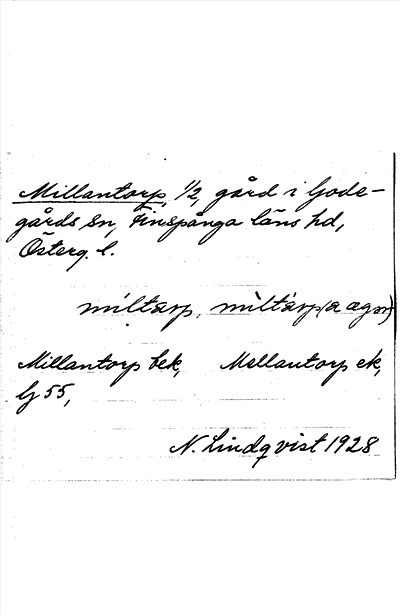 Millantorp, 1/2, gård i Gode-
gårds sn, Finspånga läns hd,
Österg. l.
miltarp, miltàrp (a ägor)
Millantorp bek, Mellantorp ek,
G 55,
N. Lindqvist 1928